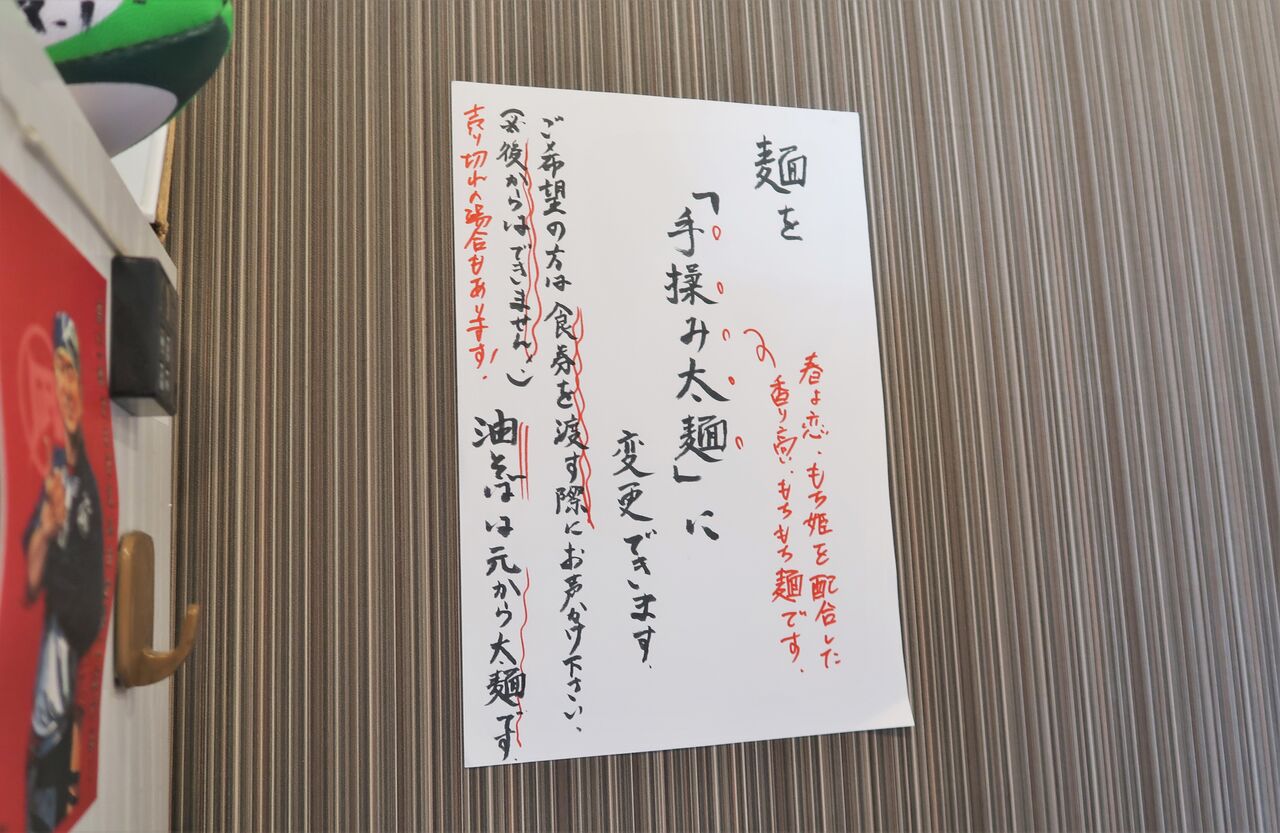 麺を
「手揉み太麺」に
変更できます.
春よ恋、もち姫を配合した
香り高い、もちもち麺です.
ご希望の方は食券を渡す際にお声かけ下さい、
(※後からはできません、)
売り切れの場合もあります!
油そばは元から太麺です.